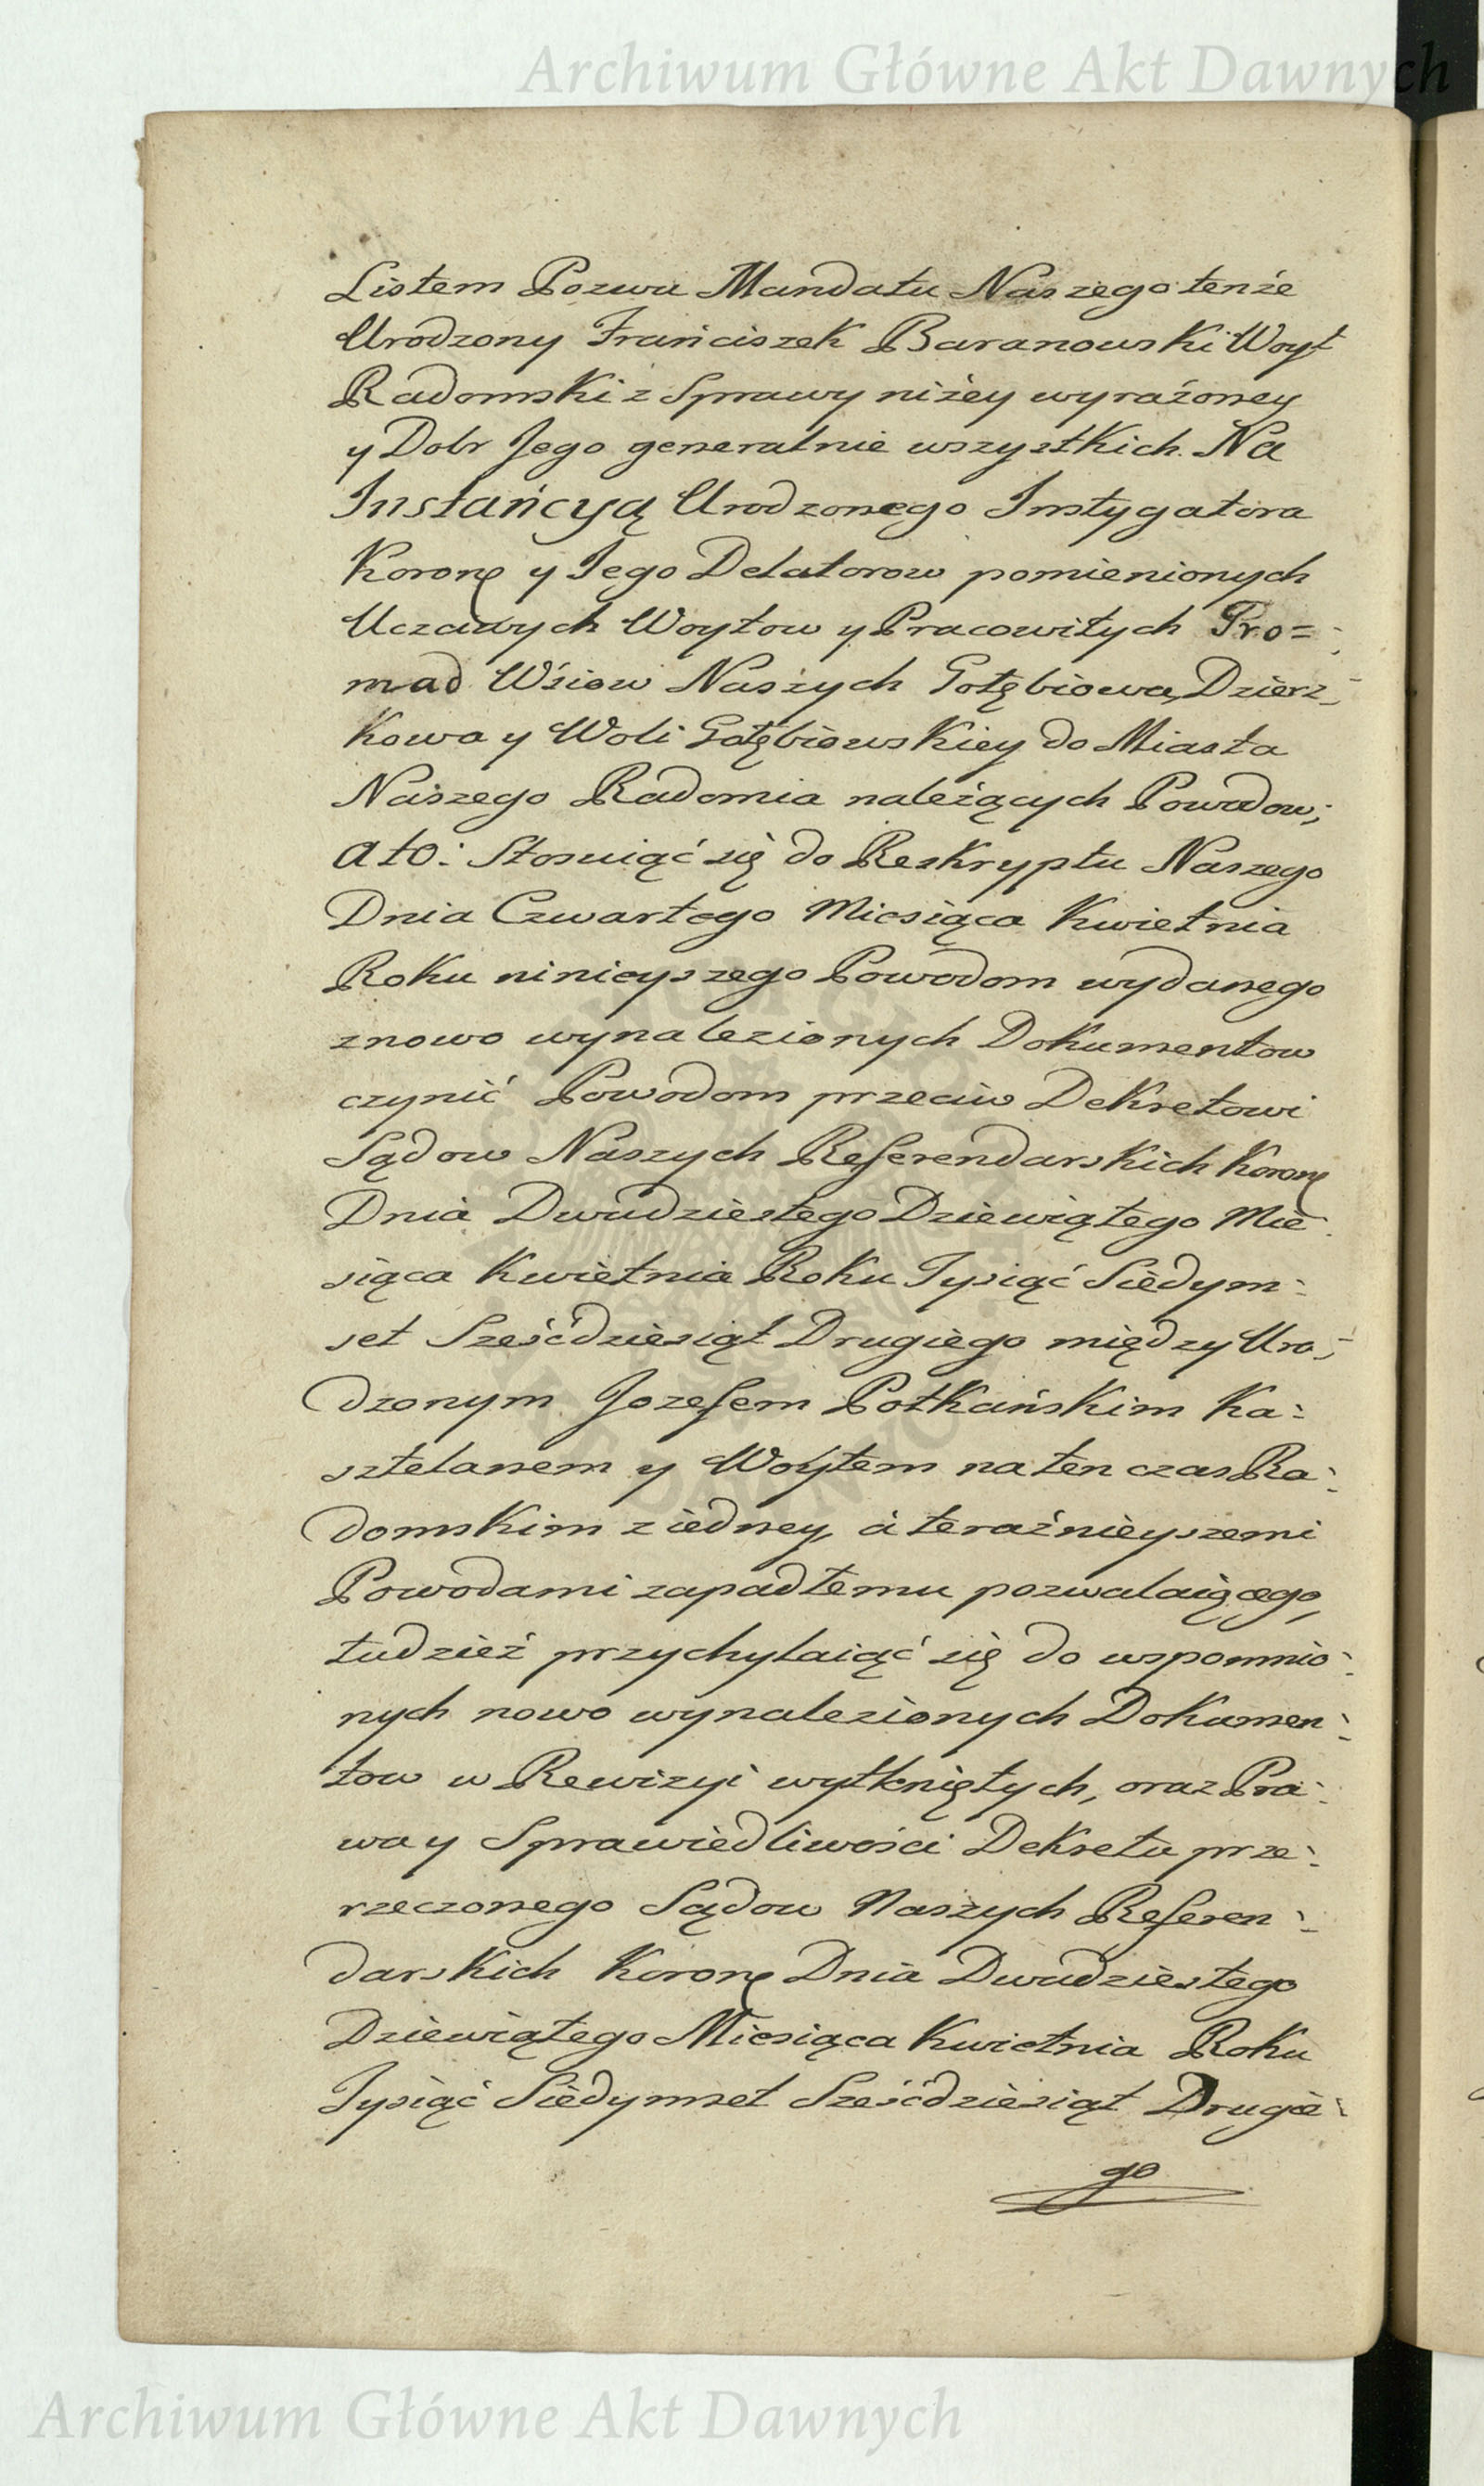 Archiwum Główne Akt Dawnych
Listem Pozwu Mandatu Naszego tenże
Urodzony Frańciszek Baranowski Woyt
Radomski z Sprawy niżey wyrażoney
y Dobr Jego generalnie wszystkich. Na
Instańcyą Urodzonego Instygatora
Koronę y Jego Delatorow pomienionych
Uczciwych Woytow y Pracowitych Gro=
mad Wśiow Naszych Gołębiowa, Dzierz-
kowa y Woli Gołębiowskiey do Miasta
Naszego Radomia należących Powodow;
ato: Stosuiąć się do Reskryptu Naszego
Dnia Czwartego Miesiąca Kwietnia
Roku ninieyszego Powodom wydanego
znowo wynalezionych Dokumentow
czynić Powodom przeciw Dekretowi
Sądow Naszych Referendarskich Koronę
Dnia Dwudziestego Dziewiątego Mie:
siąca Kwietnia Roku Tysiąć Siedym:
set Sześćdziesiąt Drugiego między Uro:
dzonym Jozefem Potkańskim Ka:
sztelanem y Woytem na ten czas Ra:
domskim z iedney, á teraźnieyszemi
Powodami zapadłemu pozwalaiącego,
tudzież przychylaiąć się do wspomnio:
nych nowo wynalezionych Dokumen:
tow w Rewizyi wytkniętych, oraz Pra:
wa y Sprawiedliwości Dekretu prze:
rzeczonego Sądow Naszych Referen:
darskich Koronę Dnia Dwudziestego
Dziewiątego Miesiąca Kwietnia Roku
Tysiąć Siedymset Sześćdziesiąt Drugie:
go
Archiwum Główne Akt Dawnych